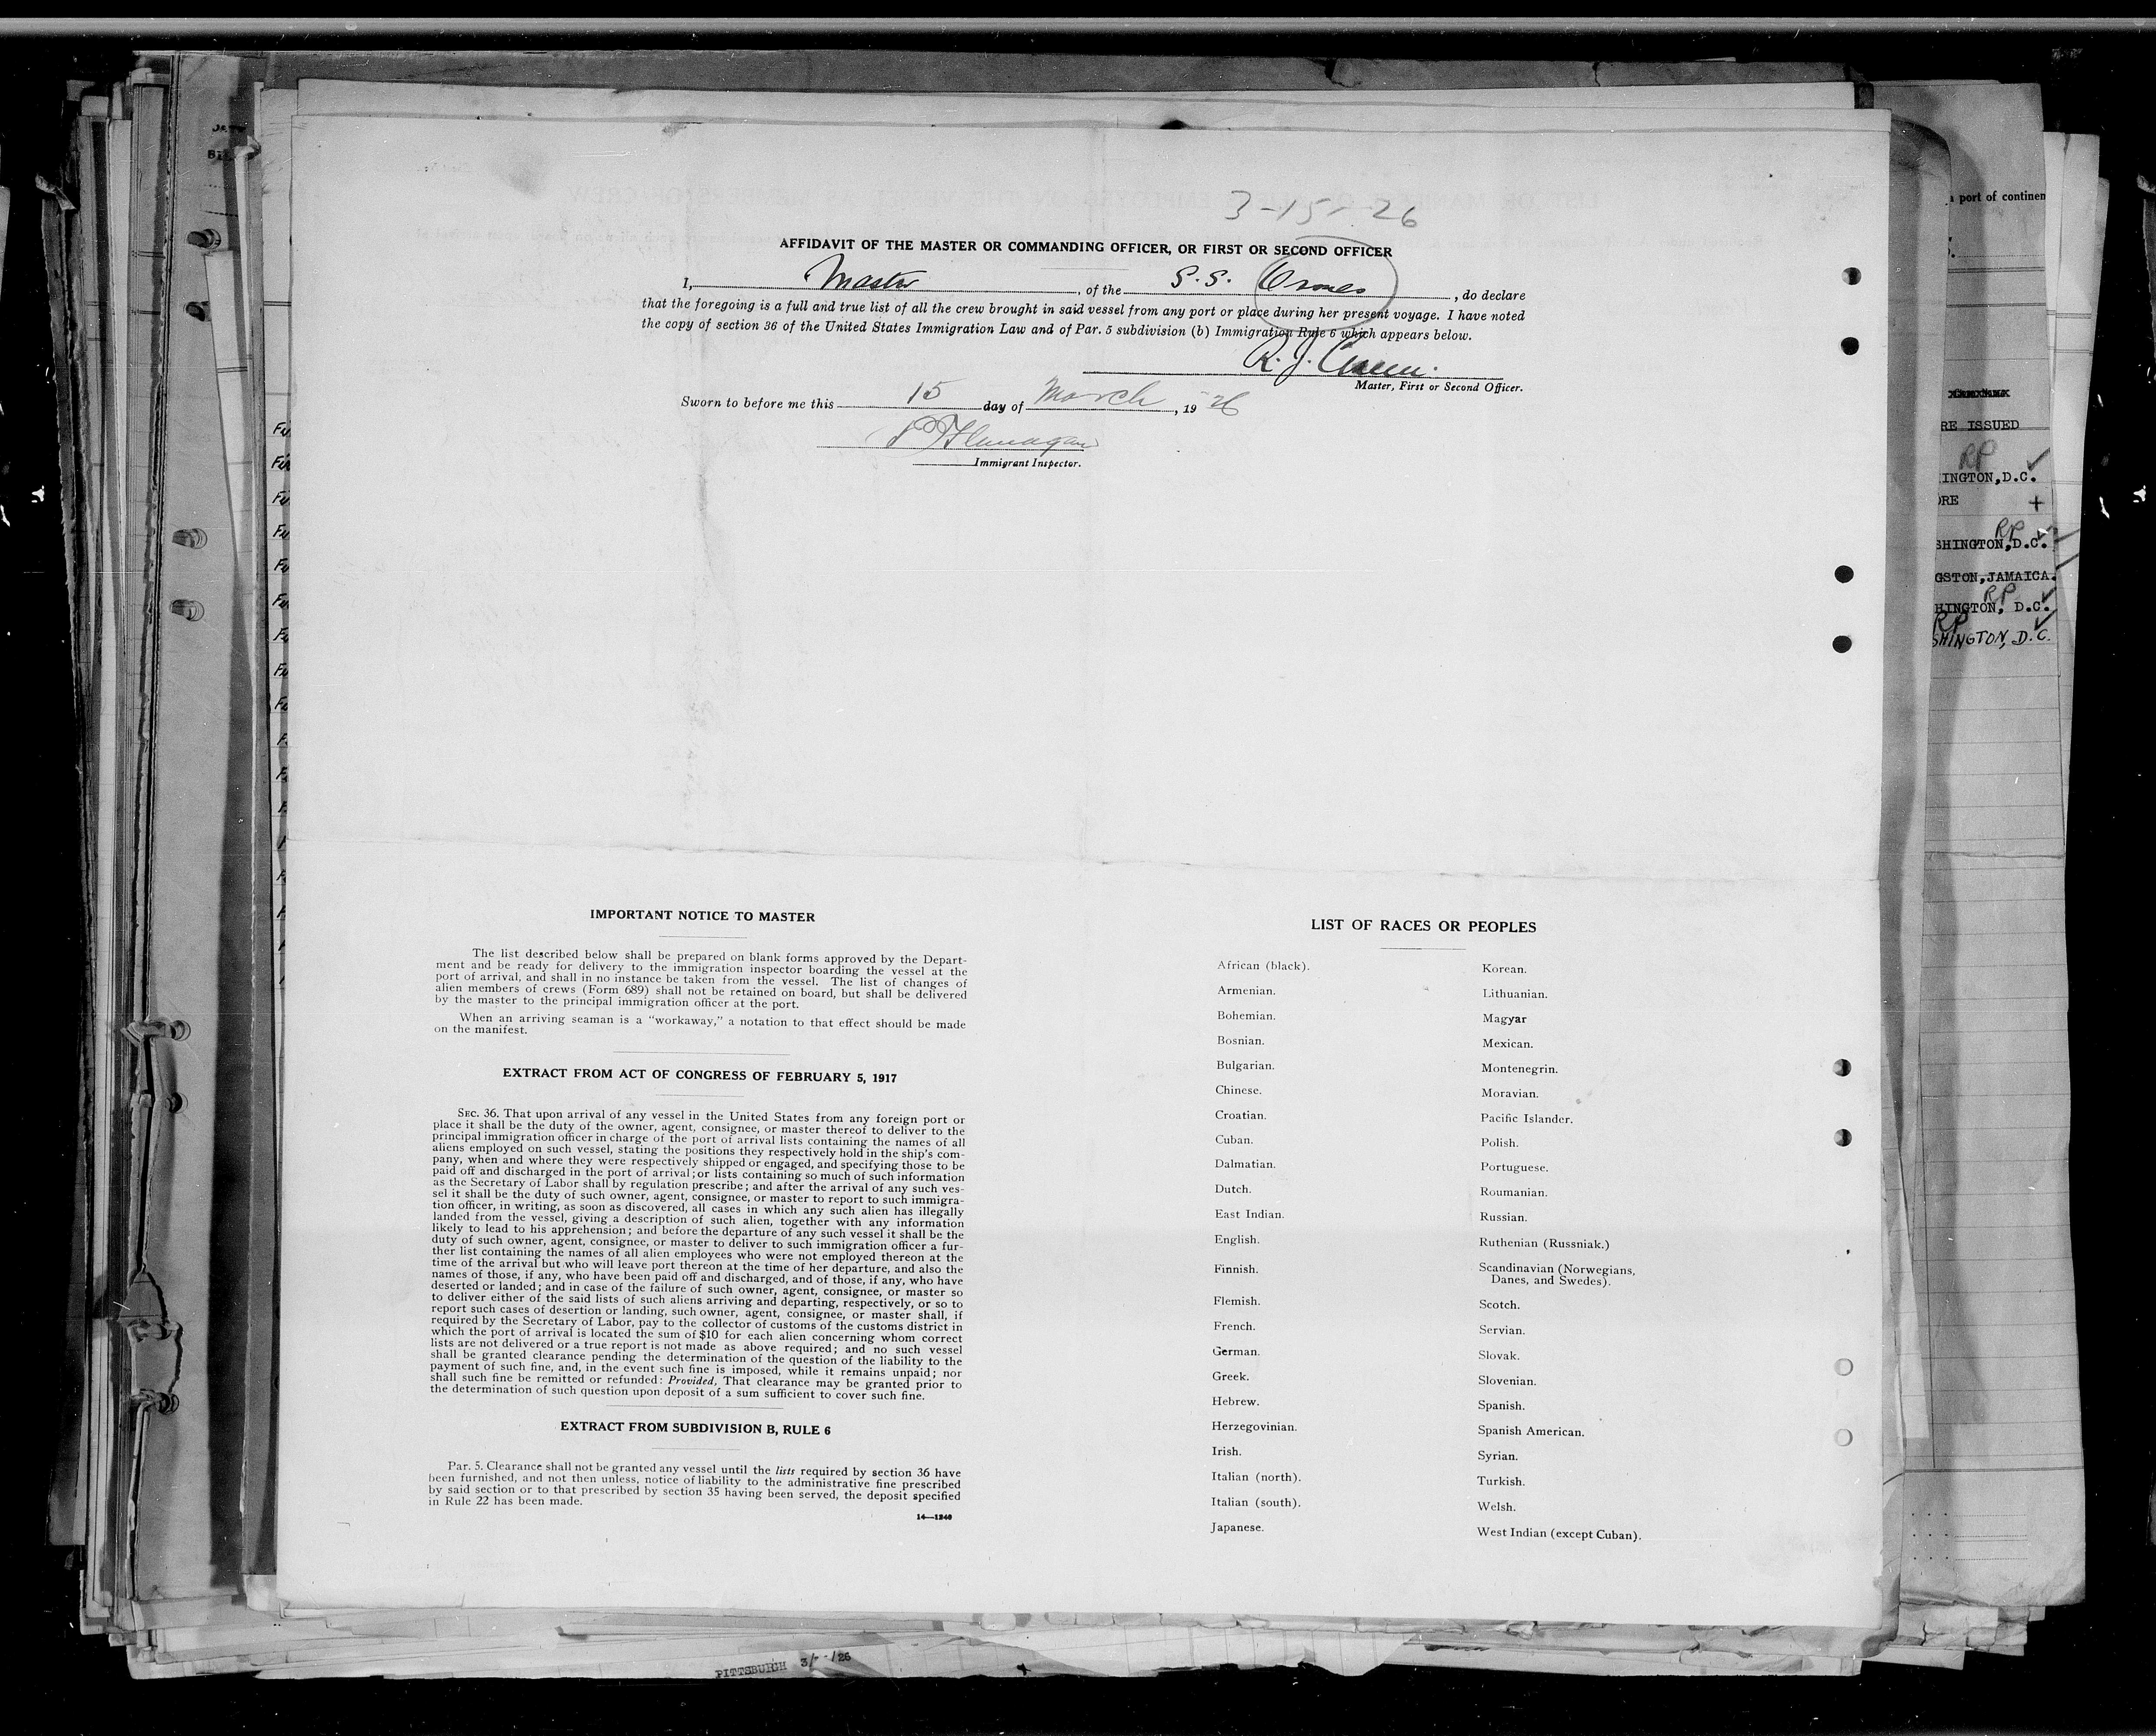 3-15-26
AFFIDAVIT OF THE MASTER OR COMMANDING OFFICER, OR FIRST OR SECOND OFFICER
I, Master, of the S.S., do declare
that the foregoing is a full and true list of all the crew brought in said vessel from any port or place during her present voyage. I have noted
the copy of section 36 of the United States Immigration Law and of Par. 5 subdivision (b) Immigration Rule 6 which appears below.
R. J.
Master, First or Second Officer.
Sworn to before me this 15 day of March, 19 26
Flanagan
Immigrant Inspector.
IMPORTANT NOTICE TO MASTER
The list described below shall be prepared on blank forms approved by the Depart-
ment and be ready for delivery to the immigration inspector boarding the vessel at the
port of arrival, and shall in no instance be taken from the vessel. The list of changes of
alien members of crews (Form 689) shall not be retained on board, but shall be delivered
by the master to the principal immigration officer at the port.
When an arriving seaman is a "workaway," a notation to that effect should be made
on the manifest.
EXTRACT FROM ACT OF CONGRESS OF FEBRUARY 5, 1917
SEC. 36. That upon arrival of any vessel in the United States from any foreign port or
place it shall be the duty of the owner, agent, consignee, or master thereof to deliver to the
principal immigration officer in charge of the port of arrival lists containing the names of all
aliens employed on such vessel, stating the positions they respectively hold in the ship's com-
pany, when and where they were respectively shipped or engaged, and specifying those to be
paid off and discharged in the port of arrival; or lists containing so much of such information
as the Secretary of Labor shall by regulation prescribe; and after the arrival of any such ves-
sel it shall be the duty of such owner, agent, consignee, or master to report to such immigra-
tion officer, in writing, as soon as discovered, all cases in which any such alien has illegally
landed from the vessel, giving a description of such alien, together with any information
likely to lead to his apprehension; and before the departure of any such vessel it shall be the
duty of such owner, agent, consignee, or master to deliver to such immigration officer a fur-
ther list containing the names of all alien employees who were not employed thereon at the
time of the arrival but who will leave port thereon at the time of her departure, and also the
names of those, if any, who have been paid off and discharged, and of those, if any, who have
deserted or landed; and in case of the failure of such owner, agent, consignee, or master so
to deliver either of the said lists of such aliens arriving and departing, respectively, or so to
report such cases of desertion or landing, such owner, agent, consignee, or master shall, if
required by the Secretary of Labor, pay to the collector of customs of the customs district in
which the port of arrival is located the sum of $10 for each alien concerning whom correct
lists are not delivered or a true report is not made as above required; and no such vessel
shall be granted clearance pending the determination of the question of the liability to the
payment of such fine, and, in the event such fine is imposed, while it remains unpaid; nor
shall such fine be remitted or refunded: Provided, That clearance may be granted prior to
the determination of such question upon deposit of a sum sufficient to cover such fine.
EXTRACT FROM SUBDIVISION B, RULE 6
Par. 5. Clearance shall not be granted any vessel until the lists required by section 36 have
been furnished, and not then unless, notice of liability to the administrative fine prescribed
by said section or to that prescribed by section 35 having been served, the deposit specified
in Rule 22 has been made.
14—1240
LIST OF RACES OR PEOPLES
African (black).
Armenian.
Bohemian.
Bosnian.
Bulgarian.
Chinese.
Croatian.
Cuban.
Dalmatian.
Dutch.
East Indian.
English.
Finnish.
Flemish.
French.
German.
Greek.
Hebrew.
Herzegovinian.
Irish.
Italian (north).
Italian (south).
Japanese.
Korean.
Lithuanian.
Magyar
Mexican.
Montenegrin.
Moravian.
Pacific Islander.
Polish.
Portuguese.
Roumanian.
Russian.
Ruthenian (Russniak.)
Scandinavian (Norwegians,
Danes, and Swedes).
Scotch.
Servian.
Slovak.
Slovenian.
Spanish.
Spanish American.
Syrian.
Turkish.
Welsh.
West Indian (except Cuban).
port of continen
RE ISSUED
RP
INGTON,D.C.
ORE +
RP
SHINGTON,D.C.
GSTON,JAMAICA.
RP
HINGTON, D.C.
RP
SHINGTON, D.C.
PITTSBURGH